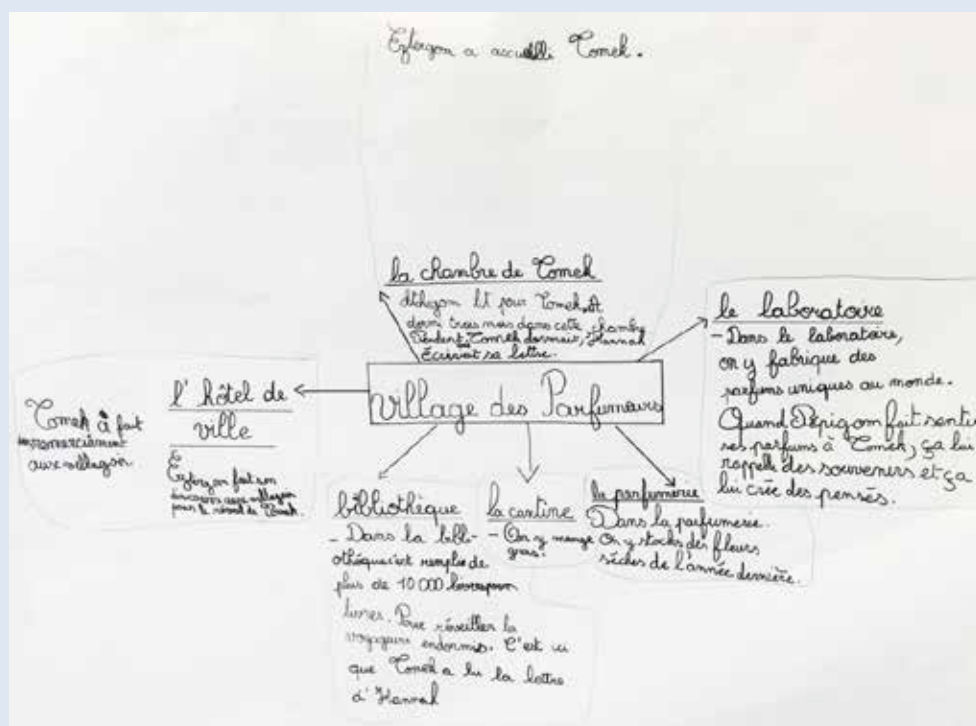 Eztergom a accueilli Tomek.
la chambre de Tomek
lit pour Tomek. A
dormi trois mois dans cette chambre
Pendent Tomek dormait, Hannah
Écrivait sa lettre.
le laboratoire
- Dans le laboratoire,
on y fabrique des
parfums uniques au monde.
Quand Pépigom fait sentir
ses parfums à Tomek, ça lui
rappelle des souveners et ça
lui crée des pensés.
village des Parfumeurs
l'hôtel de
ville
fait son
aux villageon
pour le réveil de Tomek.
Tomek à fait
remerciement
aux villageon
bibliothèque
- Dans la bibli-
othèque c'est remplie de
plus de 10 000
livres. Pour réveiller la
voyageurs endormis. C'est ici
que Tomek a lu la lettre
d'Hannah
la cantine
- On y mange
gras.
la parfumerie
Dans la parfumerie.
On y stocks des fleurs
sèches de l'année dernière.